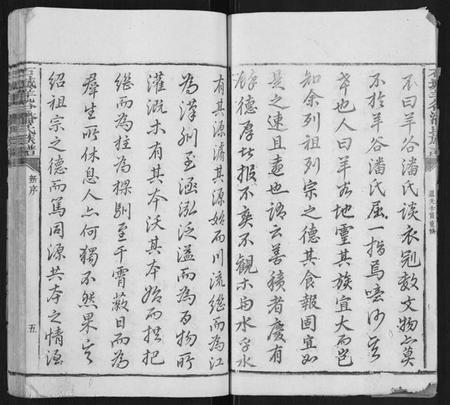 不曰羊谷潘氏談衣冠數文物亦莫
不於羊谷潘氏屈一指焉噫沙言
者也人曰羊谷地靈其族宜大而邑
知余列祖列宗之德其食報固宜如
是之速且遠也語云善積者慶有
餘德厚者報不爽不觀木與水乎水
有其源濬其源始而川流繼而為江
為漢馴至涵泓泛溢而為百物所
灌溉木有其本沃其本始而拱把
繼而為柱為樑馴至干霄蔽日而為
群生所休息人亦何獨不然果能
紹祖宗之德而篤同源共本之情源
新序
五